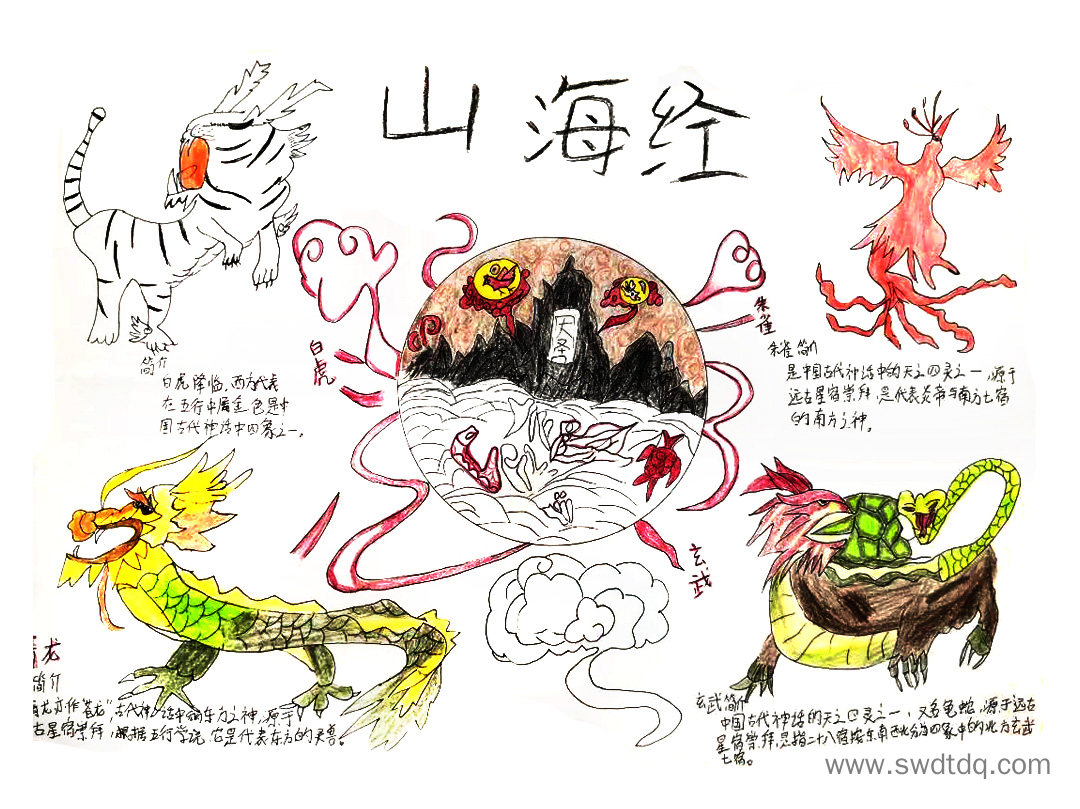 山海经
白虎
简介
白虎降临,西方代表
在五行中属金,色是中
国古代神话中四象之一。
朱雀
朱雀简介
是中国古代神话中的天之四灵之一,源于
远古星宿崇拜,是代表炎帝与南方七宿
的南方之神。
天圣
玄武
龙
简介
龙亦作"苍龙",古代神话中的东方之神,源于
古星宿崇拜,根据五行学说,它是代表东方的灵兽。
玄武简介
中国古代神话的天之四灵之一,又名龟蛇,源于远古
星宿崇拜,是指二十八宿按东南西北分为四象中的北方玄武
七宿。
www.swdtdq.com